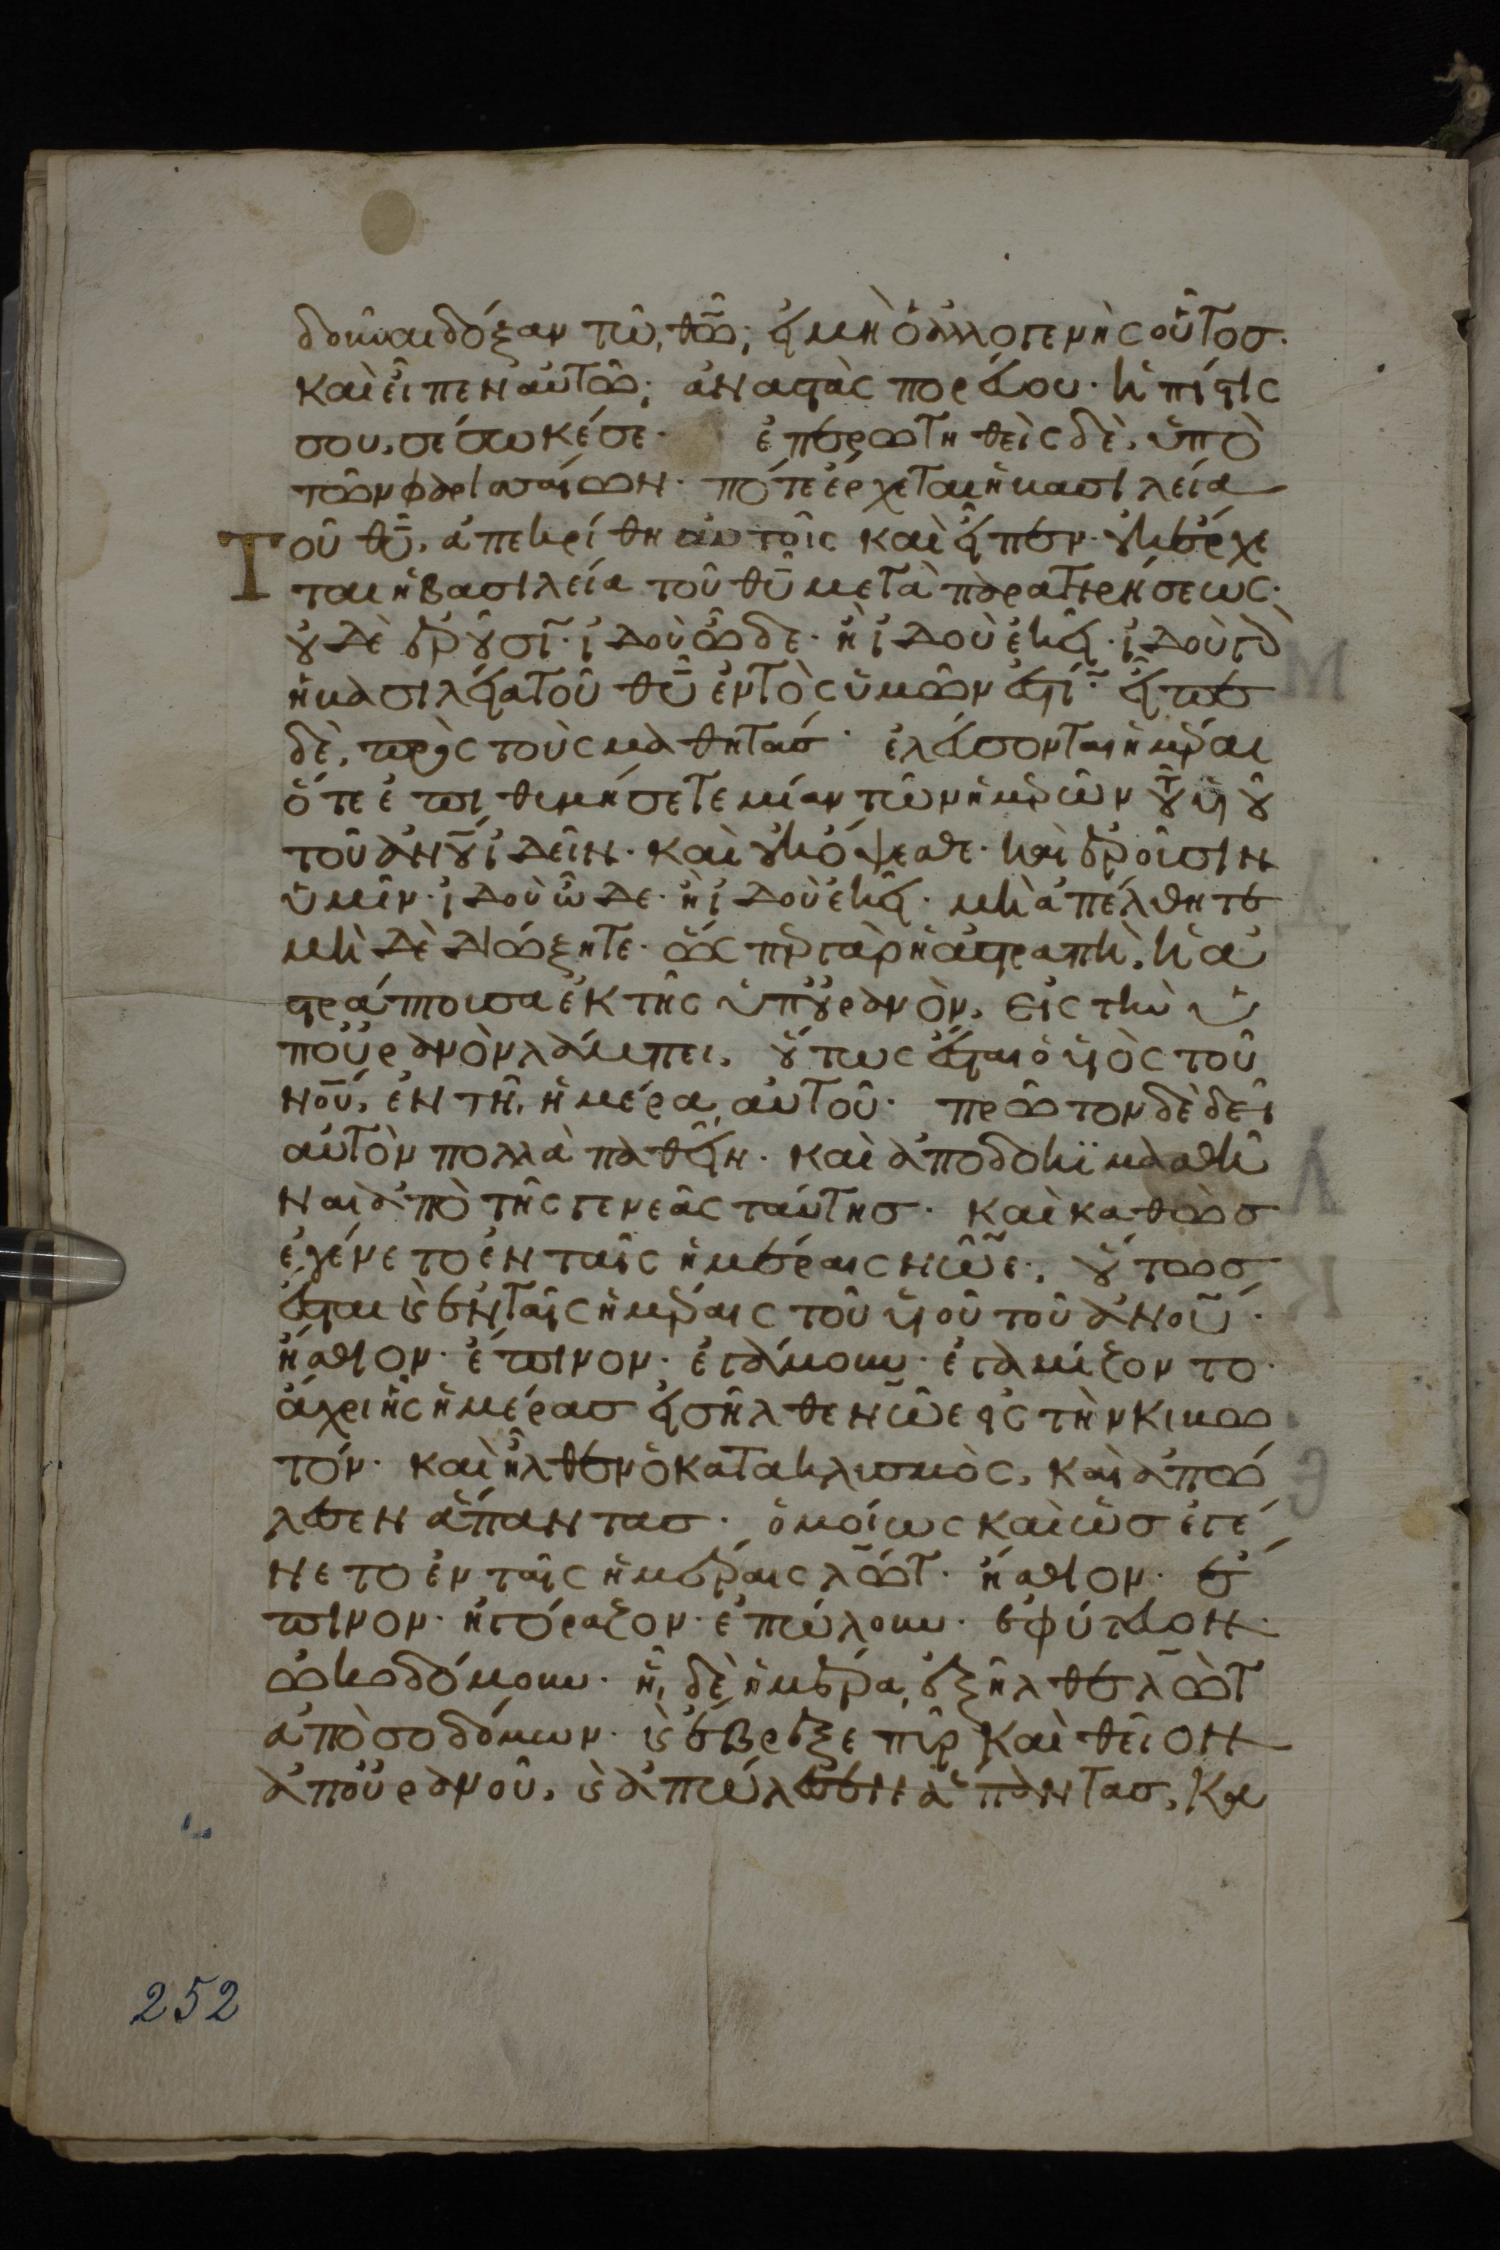 δοῦναι δόξαν τῶ θῶ, εἰ μὴ ὁ ἀλλογενὴς οὗτος·
καὶ εἶπεν αὐτῶ, ἀναστὰς πορεύου· ἡ πίστις
σου, σέσωκέ σε· ἐπερωτηθεὶς δὲ, ὑπὸ
τῶν φαρισαίων· πότε ἔρχεται ἡ βασιλεία
Τοῦ θῦ, ἀπεκρίθη αὐτοῖς καὶ εἶπεν· οὐκ ἔρχε
ται ἡ βασιλεία τοῦ θῦ μετὰ παρατηρήσεως·
οὐδὲ ἐροῦσι· ἰδοὺ ὧδε· ἢ ἰδοὺ ἐκεῖ· ἰδοὺ γὰρ
ἡ βασιλεία τοῦ θῦ ἐντὸς ὑμῶν ἐστί· εἶπε
δὲ, πρὸς τοὺς μαθητάς· ἐλεύσονται ἡμέραι
ὅτε ἐπιθυμήσετε μίαν τῶν ἡμερῶν τοῦ υἱοῦ
τοῦ ἀνου ἰδεῖν· καὶ οὐκ ὄψεσθε· καὶ ἐροῦσιν
ὑμῖν· ἰδοὺ ὧδε· ἢ ἰδοὺ ἐκεῖ· μὴ ἀπέλθητε
μὴ δὲ διώξητε· ὥσπερ γὰρ ἡ ἀστραπὴ, ἡ ἀ
στράπτουσα ἐκ τῆς ὑπ οὐρανὸν, εἰς τὴν ὑ
π οὐρανὸν λάμπει, οὕτως ἔσται ὁ υἱὸς τοῦ
ανου, ἐν τῆ ἡμέρα αὐτοῦ· πρῶτον δὲ δεῖ
αὐτὸν πολλὰ παθεῖν· καὶ ἀποδοκϊμασθῆ
ναι ἀπὸ τῆς γενεᾶς ταύτης· καὶ καθὼς
ἐγένετο ἐν ταῖς ἡμέραις νῶε, οὕτως
ἔσται καὶ ἐν ταῖς ἡμέραις τοῦ υἱοῦ τοῦ ἀνοῦ·
ἤσθιον· ἔπινον· ἐγάμουν· ἐγαμίζοντο·
ἄχρι ἧς ἡμέρας εἰσῆλθε νῶε εἰς τὴν κιβω
τόν· καὶ ἦλθεν ὁ κατακλυσμὸς, καὶ ἀπώ
λεσεν ἅπαντας· ὁμοίως καὶ ὡς ἐγέ
νετο ἐν ταῖς ἡμέραις λώτ· ἤσθιον· ἔ
πινον· ἠγόραζον· ἐπώλουν· ἐφύτευον·
ὠκοδόμουν· ἧ δὲ ἡμέρα ἐξῆλθε λὼτ
ἀπὸ σοδόμων· καὶ ἔβρεξε πῦρ καὶ θεῖον
ἀπ οὐρανοῦ, καὶ ἀπώλεσεν ἅπαντας, Κα
252